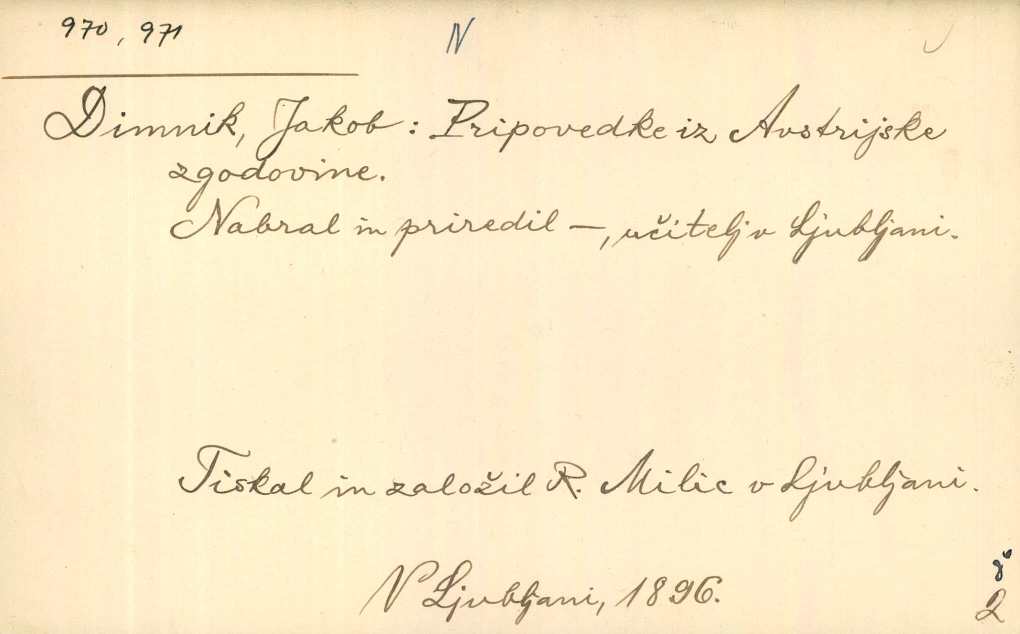 970, 971
N
Dimnik, Jakob: Pripovedke iz Avstrijske
zgodovine.
Nabral in priredil —, učitelj v Ljubljani.
Tiskal in založil R. Milic v Ljubljani.
V Ljubljani, 1896.
8°
2